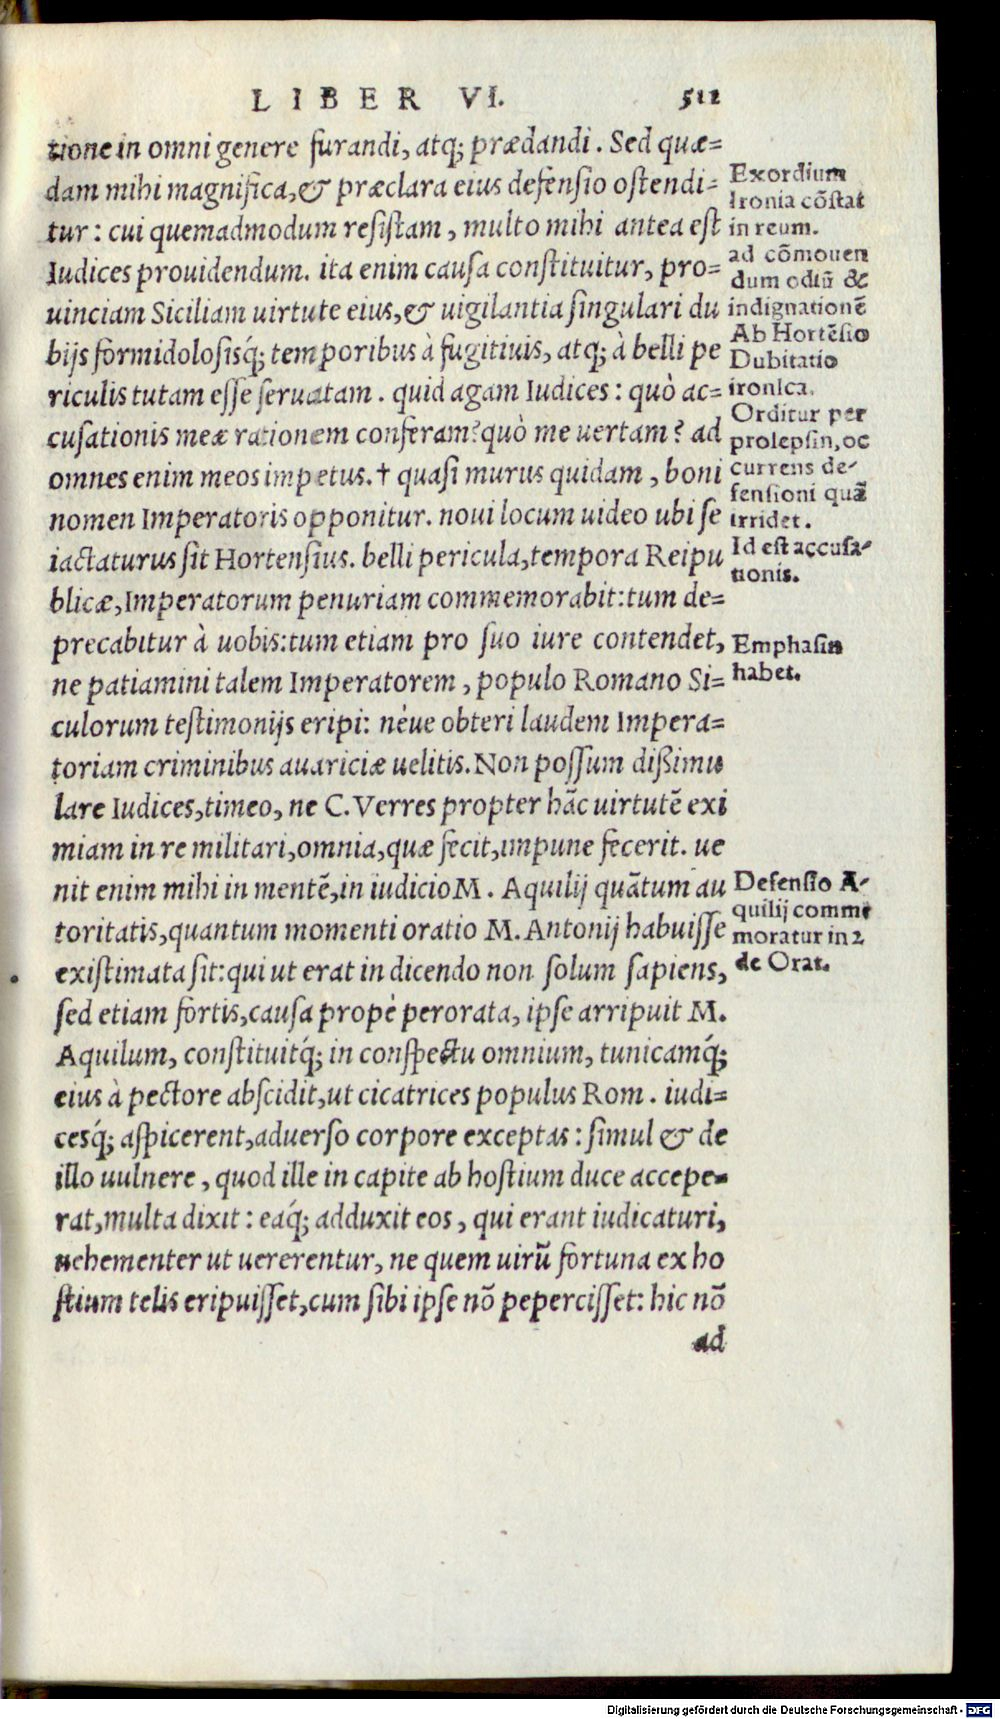 LIBER VI. 512
tione in omni genere furandi, atq; prædandi. Sed quæ=
dam mihi magnifica, & præclara eius defensio ostendi=
tur: cui quemadmodum resistam, multo mihi antea est
Iudices prouidendum. ita enim causa constituitur, pro=
uinciam Siciliam uirtute eius, & uigilantia singulari du
bijs formidolosisq́; temporibus à fugitiuis, atq; à belli pe
riculis tutam esse seruatam. quid agam Iudices: quò ac=
cusationis meæ rationem conferam? quò me uertam? ad
omnes enim meos impetus. † quasi murus quidam, boni
nomen Imperatoris opponitur. noui locum uideo ubi se
iactaturus sit Hortensius. belli pericula, tempora Reipu
blicæ, Imperatorum penuriam commemorabit: tum de=
precabitur à uobis: tum etiam pro suo iure contendet,
ne patiamini talem Imperatorem, populo Romano Si=
culorum testimonijs eripi: nèue obteri laudem Impera=
toriam criminibus auariciæ uelitis. Non possum dißimu
lare Iudices, timeo, ne C. Verres propter hãc uirtutẽ exi
miam in re militari, omnia, quæ fecit, impune fecerit. ue
nit enim mihi in mentẽ, in iudicio M. Aquilij quãtum au
toritatis, quantum momenti oratio M. Antonij habuisse
existimata sit: qui ut erat in dicendo non solum sapiens,
sed etiam fortis, causa propè perorata, ipse arripuit M.
Aquilum, constituitq́; in conspectu omnium, tunicamq́;
eius à pectore abscidit, ut cicatrices populus Rom. iudi=
cesq́; aspicerent, aduerso corpore exceptas: simul & de
illo uulnere, quod ille in capite ab hostium duce accepe=
rat, multa dixit: eaq́; adduxit eos, qui erant iudicaturi,
uehementer ut uererentur, ne quem uirũ fortuna ex ho
stium telis eripuisset, cum sibi ipse nõ pepercisset: hic nõ
ad
Exordium
Ironia cõstat
in reum.
ad cõmouen
dum odiũ &
indignationẽ
Ab Hortẽsio
Dubitatio
ironica.
Orditur per
prolepsin, oc
currens de-
fensioni quã
irridet.
Id est accusa-
tionis.
Emphasin
habet.
Defensio A-
quilij comme
moratur in 2
de Orat.
Digitalisierung gefördert durch die Deutsche Forschungsgemeinschaft - DFG